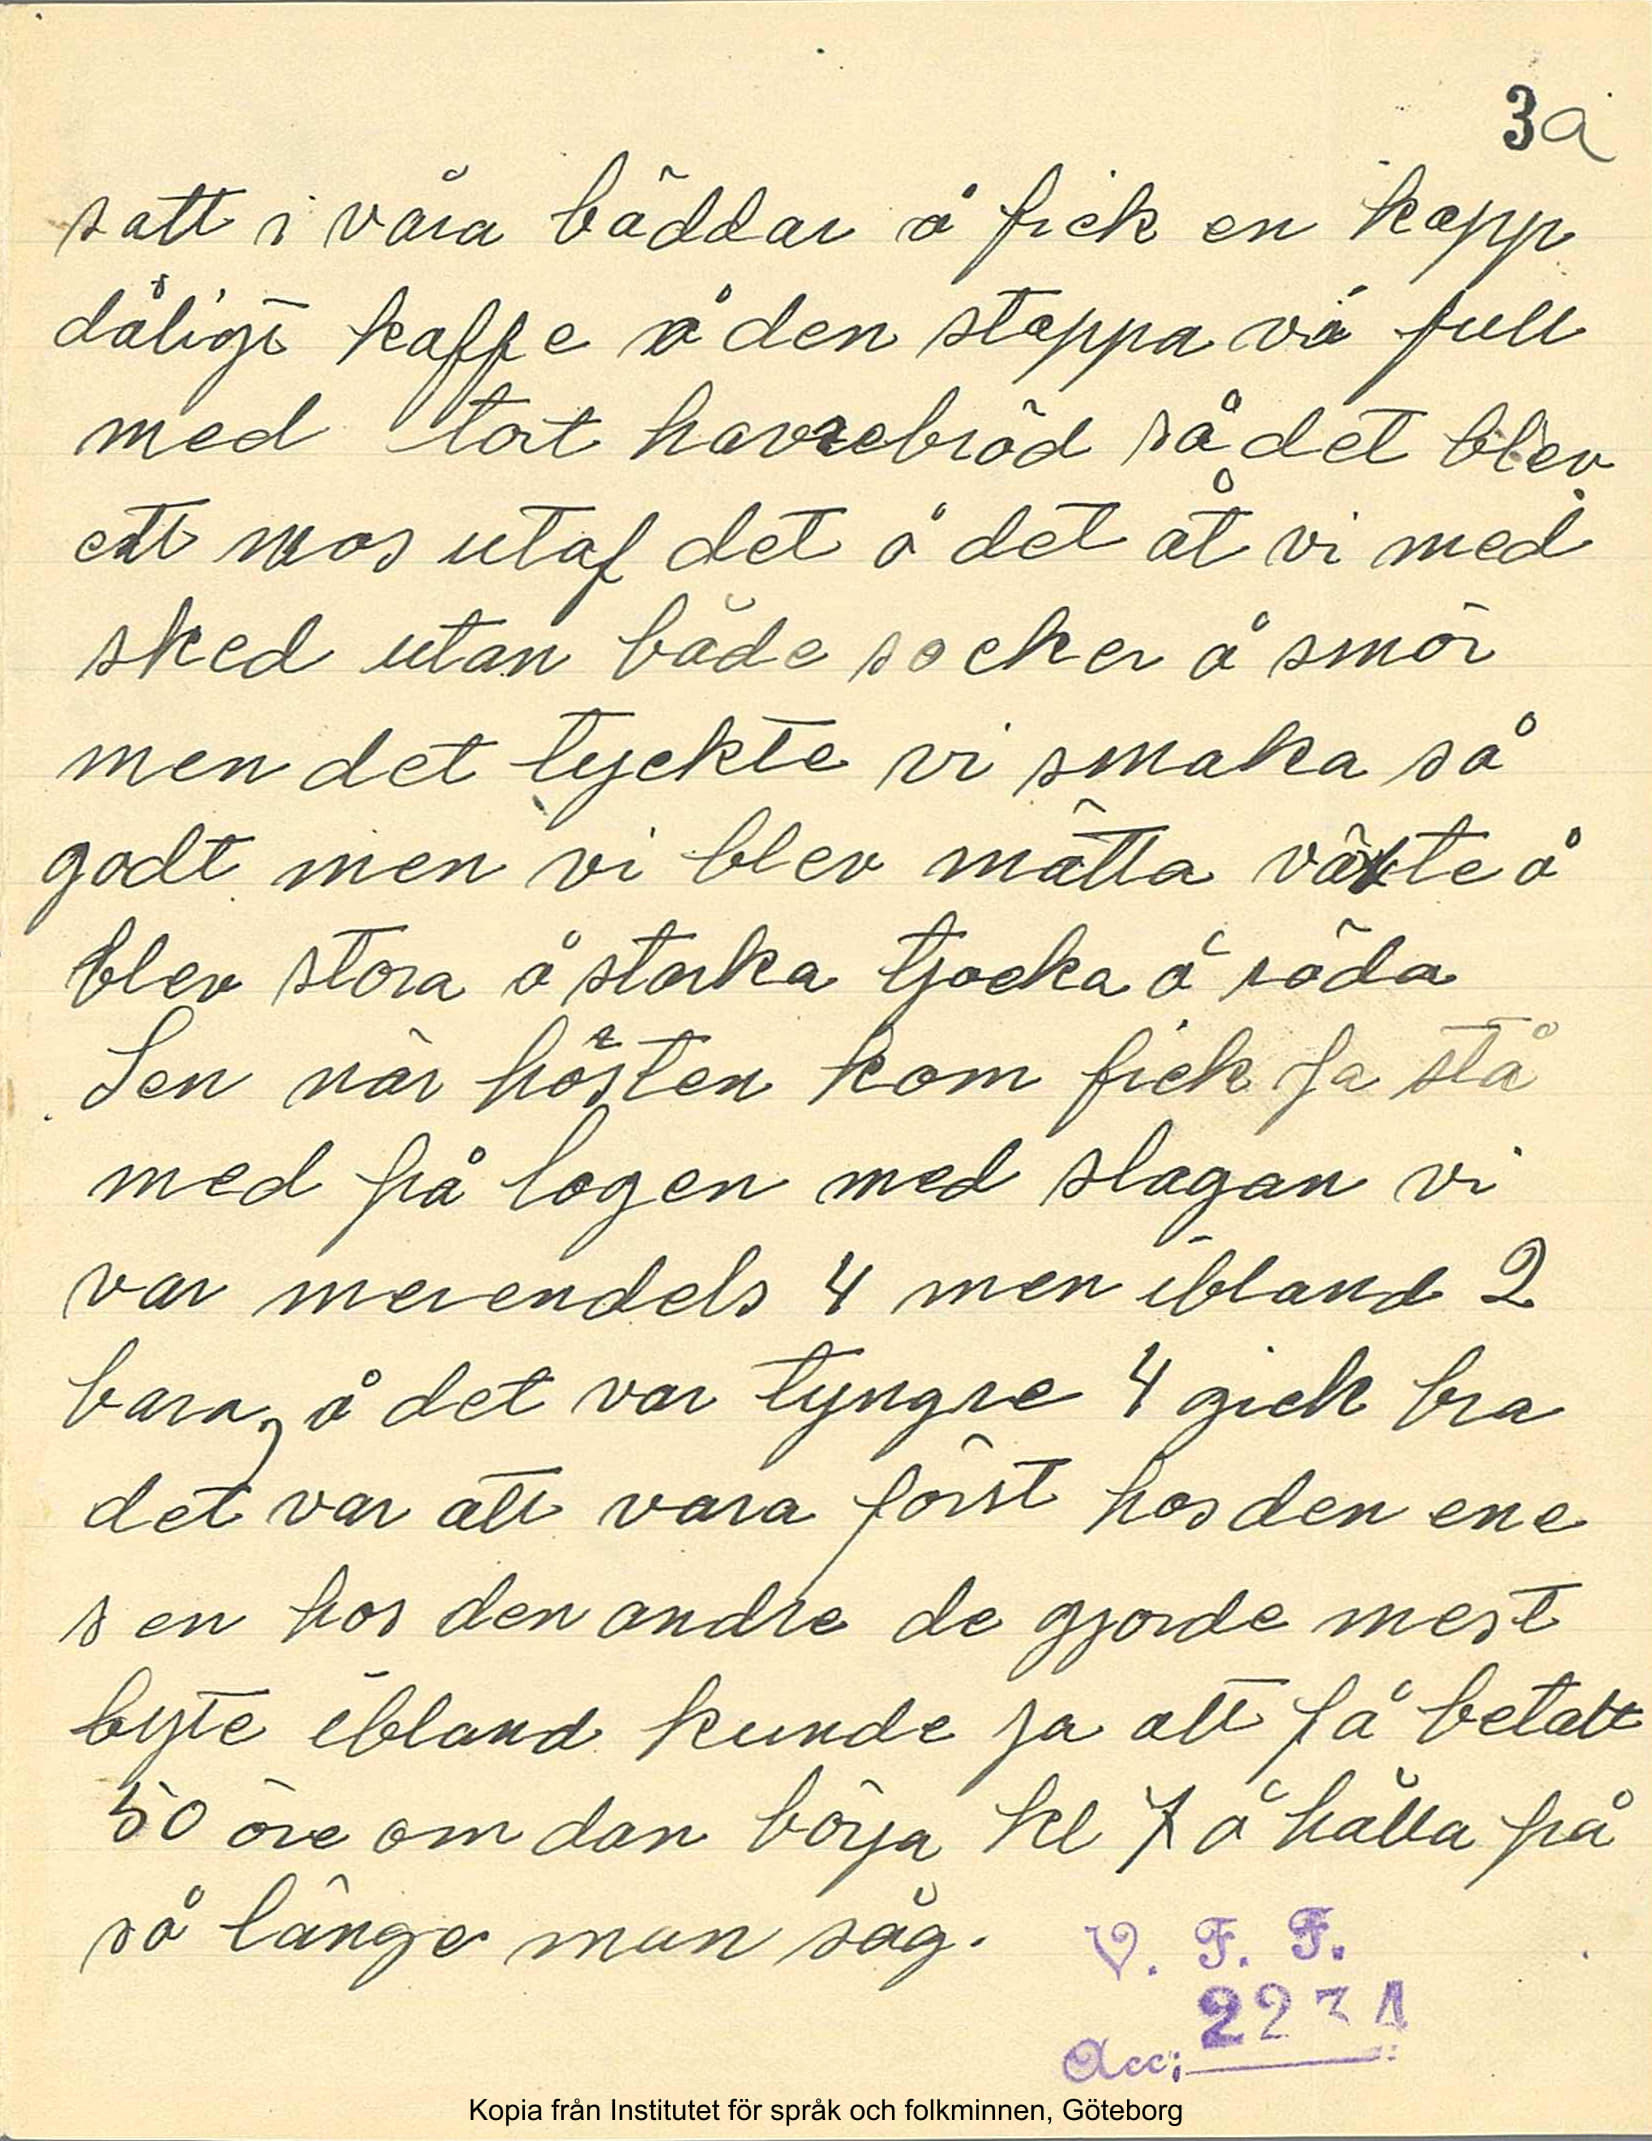 3a
satt i våra bäddar å fick en kopp
dåligt kaffe å den stoppa vi full
med tort havrebröd så det blev
ett mos utaf det å det åt vi med
sked utan både socker å smör
men det tyckte vi smaka så
godt men vi blev mätta växte å
blev stora å starka tjocka å röda
Sen när hösten kom fick ja stå
med på logen med slagan vi
var merendels 4 men ibland 2
bara, å det var tyngre 4 gick bra
det var att vara först hos den ene
sen hos den andre de gjorde mest
byte ibland kunde ja att få betalt
50 öre om dan börja kl 7 å hålla på
så länge man såg.
V. F. F.
2231
Acc:
Kopia från Institutet för språk och folkminnen, Göteborg